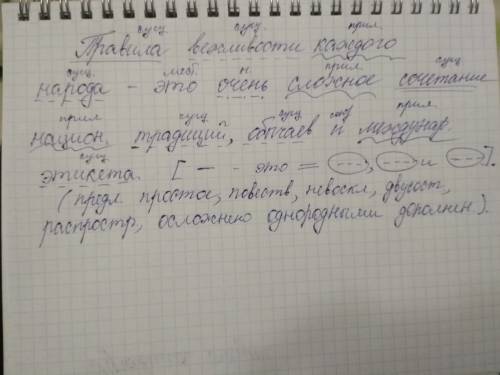 сущ. сущ. прил.
Правила вежливости каждого
сущ. мест. н. прил. сущ.
народа - это очень сложное сочетание
прил. сущ. сущ. союз прил.
национ. традиций, обычаев и междунар.
сущ.
этикета. [ — - это = , и ].
(предл. простое, повеств, невоскл, двусост,
распростр, осложнено однородными дополнен.).